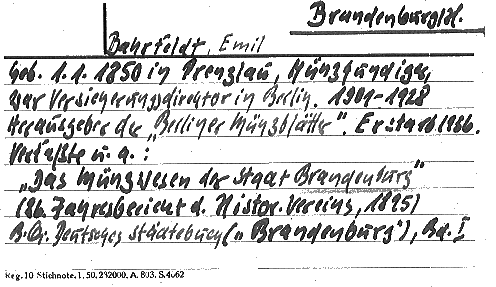 Brandenburg/H.
Bahrfeldt, Emil
Geb. 1.1.1850 in Prenzlau, Münzkundiger,
war Versicherungsdirektor in Berlin. 1901-1928
Herausgeber der „Berliner Münzblätter". Er starb 1936.
Verfaßte u. a.:
„Das Münzwesen der Stadt Brandenburg"
Jahresbericht d. Histor. Vereins, 1895)
Deutsches Städtebuch („Brandenburg"), Bd. I
Reg. 10 Stichnote. 1. 50. 232000. A. 803. S. 4662